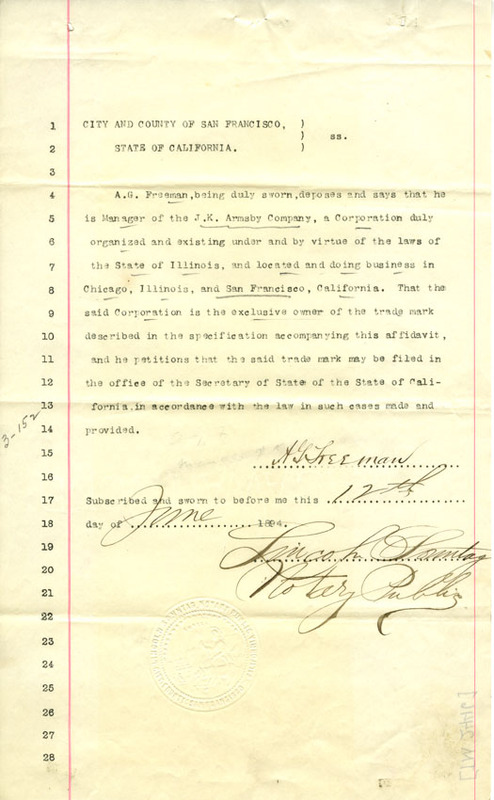 1 CITY AND COUNTY OF SAN FRANCISCO, )
) ss.
2 STATE OF CALIFORNIA. )
3
4 A.G. Freeman,being duly sworn,deposes and says that he
5 is Manager of the J.K. Armsby Company, a Corporation duly
6 organized and existing under and by virtue of the laws of
7 the State of Illinois, and located and doing business in
8 Chicago, Illinois, and San Francisco, California. That the
9 said Corporation is the exclusive owner of the trade mark
10 described in the specification accompanying this affidavit,
11 and he petitions that the said trade mark may be filed in
12 the office of the Secretary of State of the State of Cali-
13 fornia,in accordance with the law in such cases made and
3-152
14 provided.
15 A G Freeman
16
17 Subscribed and sworn to before me this 12th
18 day of June 1894.
19 Lincoln Sonntag
20
21 Notary Public
22
23
24
25
26
27
28